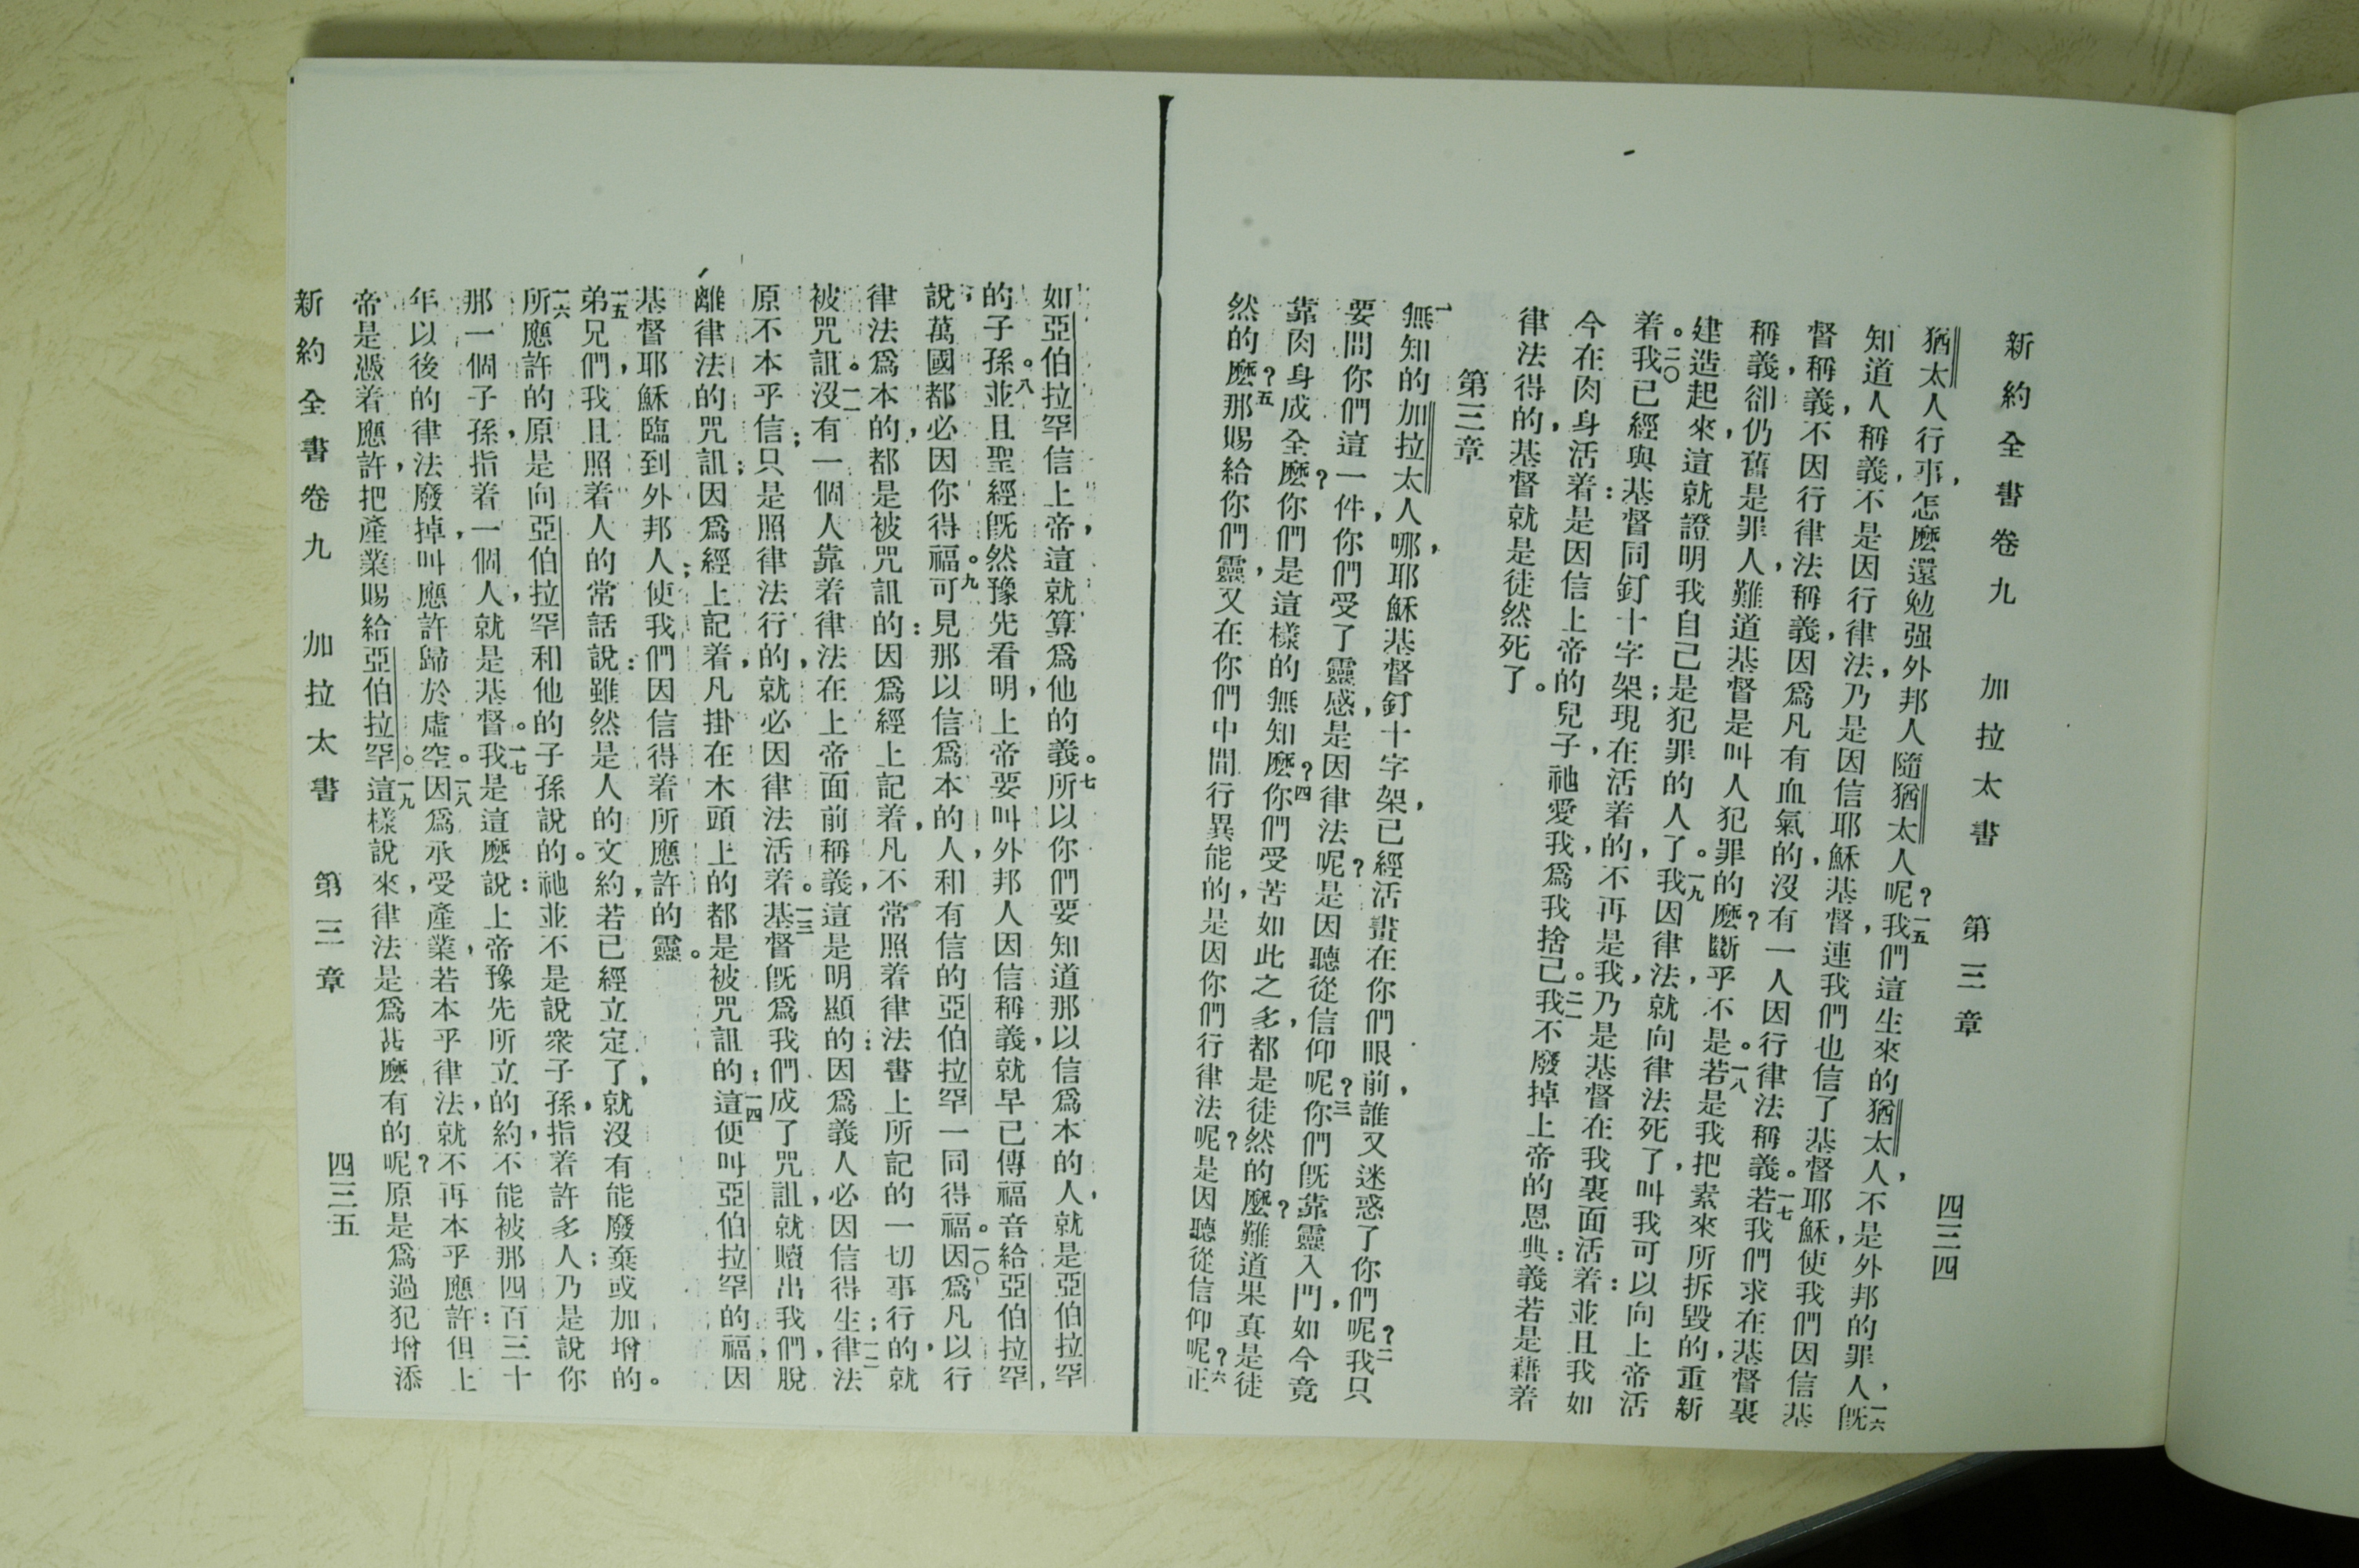 新約全書卷九　加拉太書　第三章　四三四
猶太人行事，怎麼還勉强外邦人隨猶太人呢？一五我們這生來的猶太人，不是外邦的罪人，一六旣
知道人稱義，不是因行律法，乃是因信耶穌基督，連我們也信了基督耶穌，使我們因信基
督稱義，不因行律法稱義，因爲凡有血氣的，沒有一人因行律法稱義。一七若我們求在基督裏
稱義，卻仍舊是罪人，難道基督是叫人犯罪的麼？斷乎不是。一八若是我把素來所拆毀的，重新
建造起來，這就證明我自己是犯罪的人了。一九我因律法，就向律法死了，叫我可以向上帝活
着。二〇我已經與基督同釘十字架；現在活着的，不再是我，乃是基督在我裏面活着：並且我如
今在肉身活着：是因信上帝的兒子，祂愛我，爲我捨己。二一我不廢掉上帝的恩典：義若是藉着
律法得的，基督就是徒然死了。
第三章
一無知的加拉太人哪，耶穌基督釘十字架，已經活畫在你們眼前，誰又迷惑了你們呢？二我只
要問你們這一件，你們受了靈感，是因律法呢？是因聽從信仰呢？三你們旣靠靈入門，如今竟
靠肉身成全麼？你們是這樣的無知麼？四你們受苦如此之多，都是徒然的麼？難道果真是徒
然的麼？五那賜給你們靈，又在你們中間行異能的，是因你們行律法呢？是因聽從信仰呢？六正
如亞伯拉罕信上帝，這就算爲他的義。七所以你們要知道那以信爲本的人，就是亞伯拉罕
的子孫。八並且聖經旣然豫先看明，上帝要叫外邦人因信稱義，就早已傳福音給亞伯拉罕，
說，萬國都必因你得福。九可見那以信爲本的人，和有信的亞伯拉罕一同得福。一〇因爲凡以行
律法爲本的，都是被咒詛的：因爲經上記着，凡不常照着律法書上所記的一切事行的，就
被咒詛。一一沒有一個人靠着律法在上帝面前稱義，這是明顯的：因爲義人必因信得生；一二律法
原不本乎信；只是照律法行的，就必因律法活着。一三基督旣爲我們成了咒詛，就贖出我們，脫
離律法的咒詛；因爲經上記着，凡掛在木頭上的都是被咒詛的：一四這便叫亞伯拉罕的福，因
基督耶穌，臨到外邦人；使我們因信得着所應許的靈。
一五弟兄們，我且照着人的常話說：雖然是人的文約，若已經立定了，就沒有能廢棄或加增的。
一六所應許的，原是向亞伯拉罕和他的子孫說的。祂並不是說衆子孫，指着許多人；乃是說你
那一個子孫，指着一個人，就是基督。一七我是這麼說：上帝豫先所立的約，不能被那四百三十
年以後的律法廢掉，叫應許歸於虛空。一八因爲承受產業，若本乎律法，就不再本乎應許：但上
帝是憑着應許，把產業賜給亞伯拉罕。一九這樣說來，律法是爲甚麼有的呢？原是爲過犯增添
新約全書卷九　加拉太書　第三章　四三五